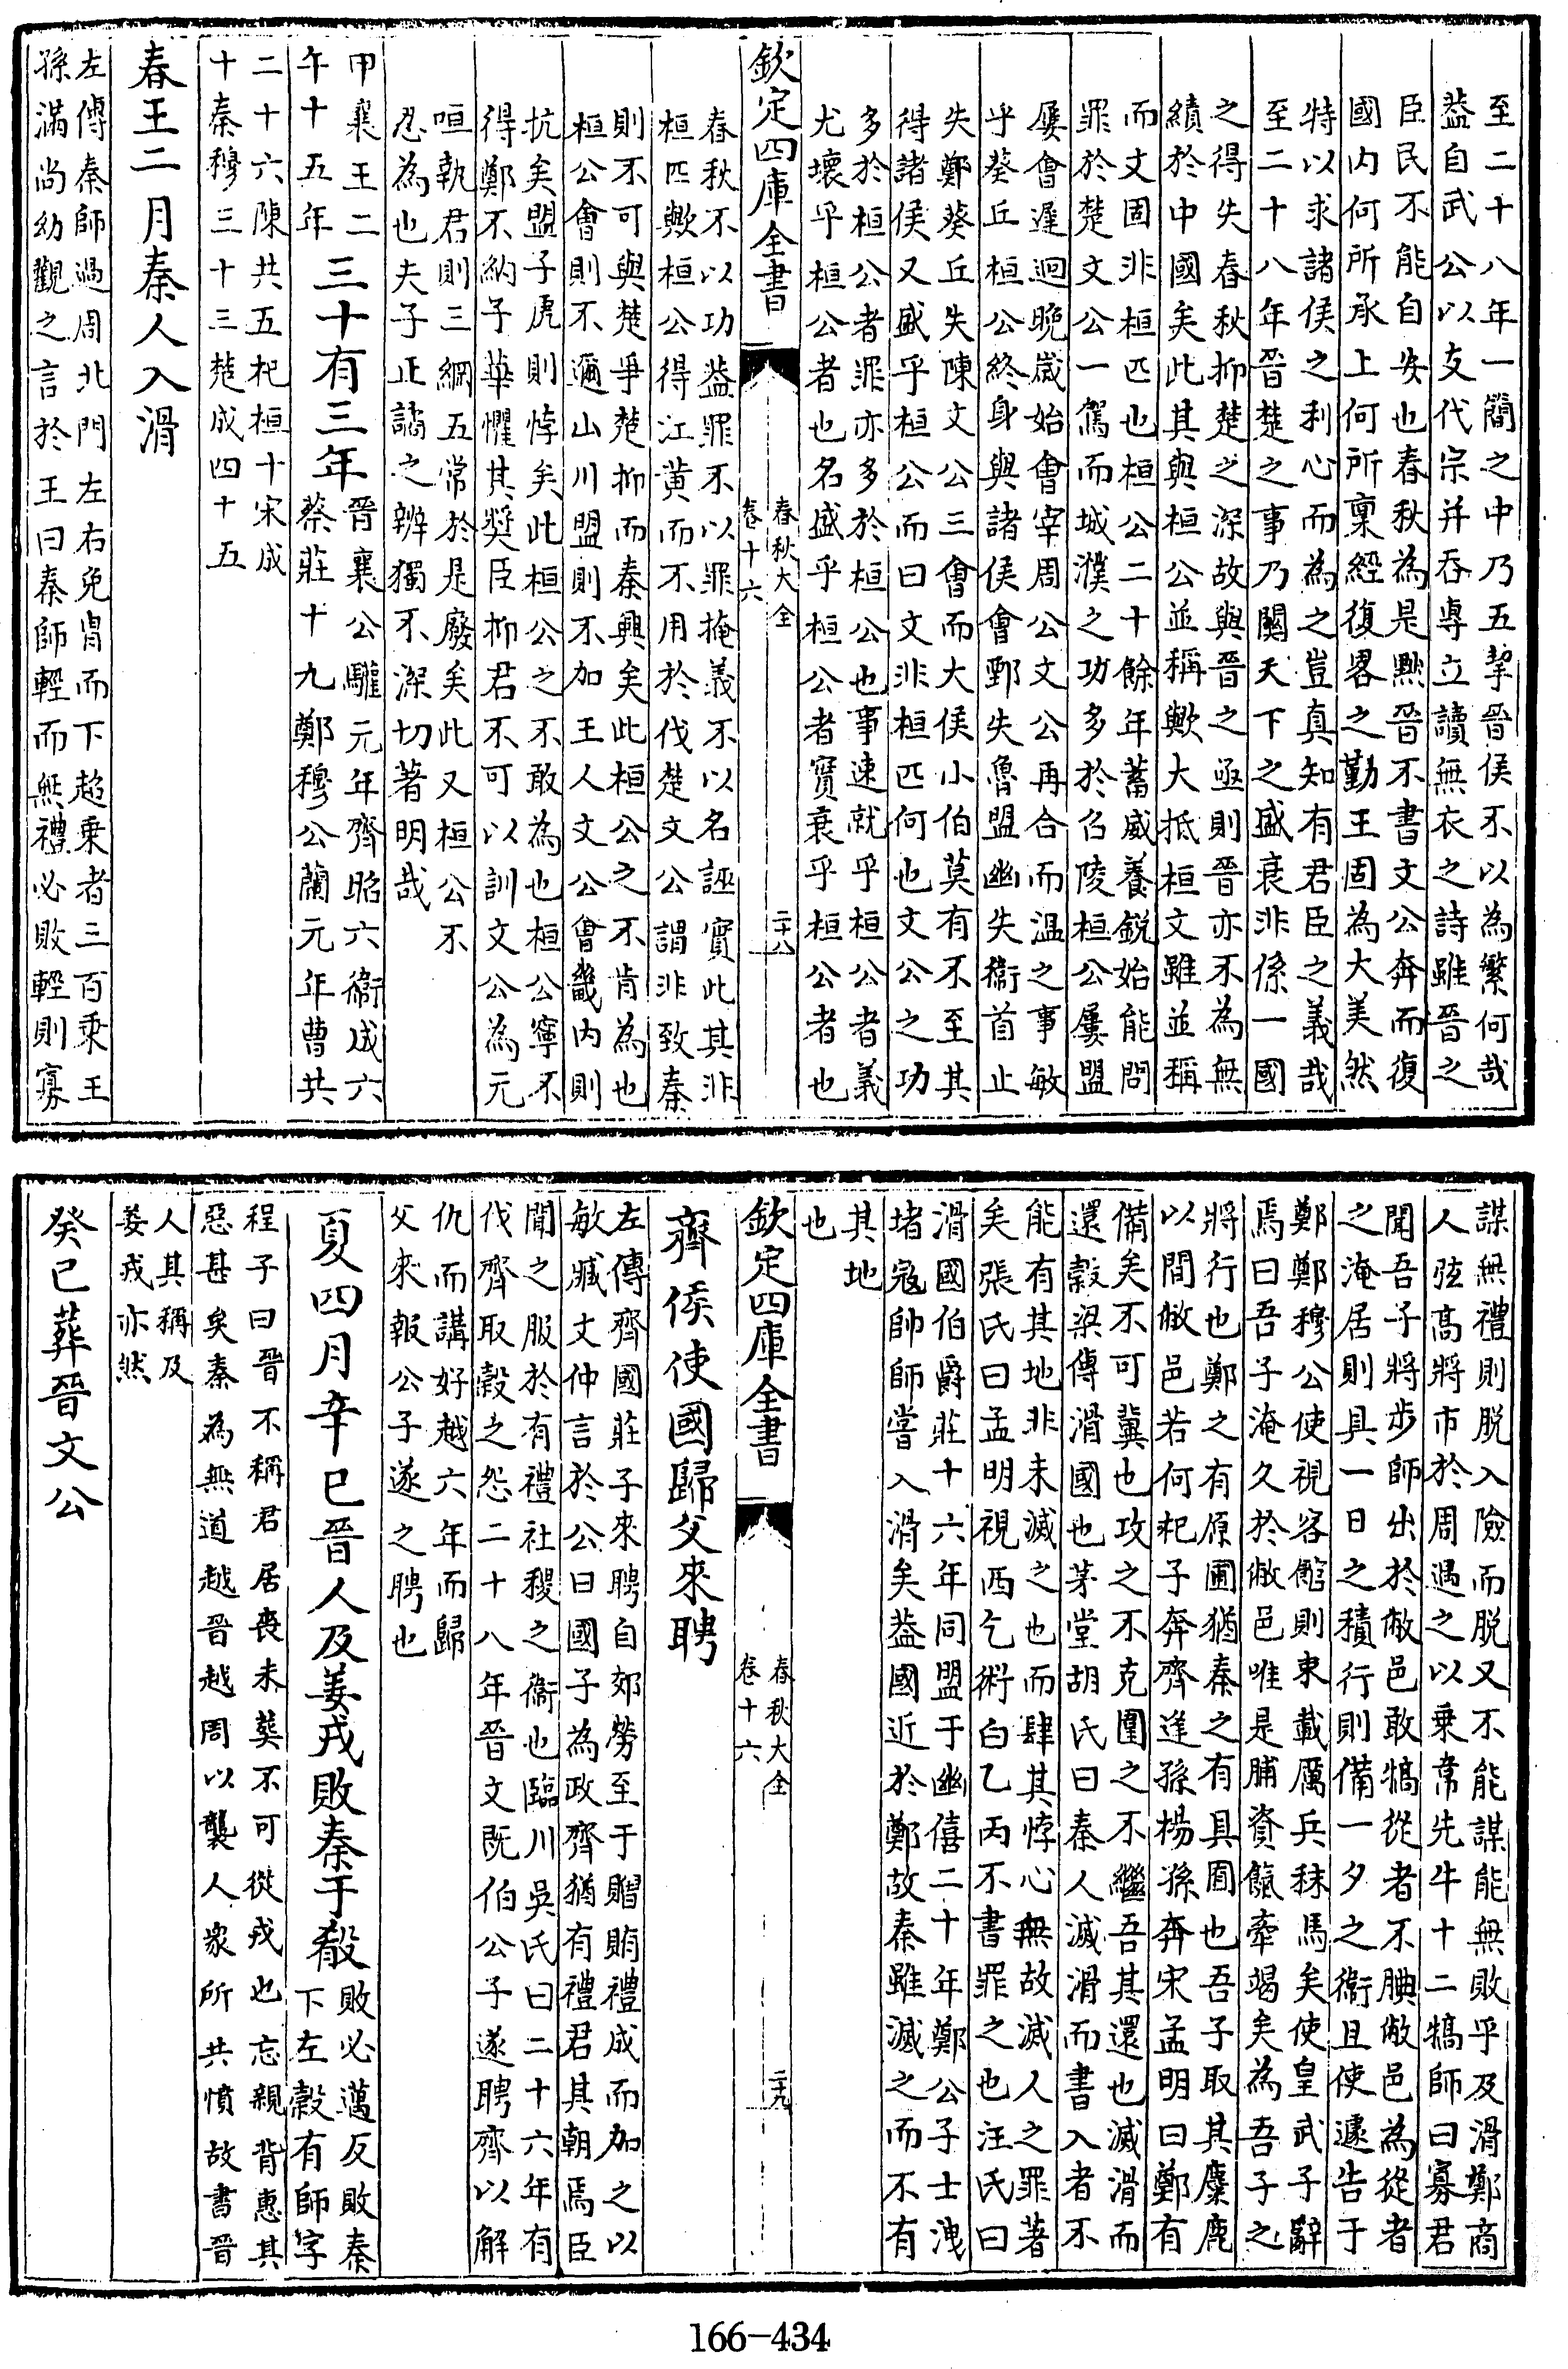 至二十八年一簡之中乃五挈晉侯不以為繁何哉
蓋自武公以支代宗并吞專立讀無衣之詩雖晉之
臣民不能自安也春秋為是黙晉不書文公奔而復
國内何所承上何所稟經復畧之勤王固為大美然
特以求諸侯之利心而為之豈真知有君臣之義哉
至二十八年晉楚之事乃關天下之盛衰非係一國
之得失春秋抑楚之深故與晉之亟則晉亦不為無
績於中國矣此其與桓公並稱歟大抵桓文雖並稱
而文固非桓匹也桓公二十餘年蓄威養鋭始能問
罪於楚文公一駕而城濮之功多於召陵桓公屢盟
屢會遲迴晚嵗始會宰周公文公再合而温之事敏
乎葵丘桓公終身與諸侯會鄄失魯盟幽失衞首止
失鄭葵丘失陳文公三會而大侯小伯莫有不至其
得諸侯又盛乎桓公而曰文非桓匹何也文公之功
多於桓公者罪亦多於桓公也事速就乎桓公者義
尤壞乎桓公者也名盛乎桓公者實衰乎桓公者也
欽定四庫全書
春秋大全
卷十六
二十八
春秋不以功蓋罪不以罪掩義不以名誣實此其非
桓匹歟桓公得江黄而不用於伐楚文公謂非致秦
則不可與楚爭楚抑而秦興矣此桓公之不肯為也
桓公會則不邇山川盟則不加王人文公會畿内則
抗矣盟子虎則悖矣此桓公之不敢為也桓公寧不
得鄭不納子華懼其奨臣抑君不可以訓文公為元
咺執君則三綱五常於是廢矣此又桓公不
忍為也夫子正譎之辨獨不深切著明哉
甲襄王二
午十五年
三十有三年
晉襄公驩元年齊昭六衞成六
蔡莊十九鄭穆公蘭元年曹共
二十六陳共五杞桓十宋成
十秦穆三十三楚成四十五
春王二月秦人入滑
左傳秦師過周北門左右免胄而下超乗者三百乗王
孫滿尚幼觀之言於王曰秦師輕而無禮必敗輕則寡
謀無禮則脱入險而脱又不能謀能無敗乎及滑鄭商
人弦髙將市於周遇之以乗韋先牛十二犒師曰寡君
聞吾子將步師出於敝邑敢犒從者不腆敝邑為從者
之淹居則具一日之積行則備一夕之衞且使遽告于
鄭鄭穆公使視客館則束載厲兵秣馬矣使皇武子辭
焉曰吾子淹久於敝邑唯是脯資餼牽竭矣為吾子之
將行也鄭之有原圃猶秦之有具囿也吾子取其麋鹿
以間敝邑若何杞子奔齊逢孫楊孫奔宋孟明曰鄭有
備矣不可冀也攻之不克圍之不繼吾其還也滅滑而
還榖梁傳滑國也茅堂胡氏曰秦人滅滑而書入者不
能有其地非未滅之也而肆其悖心無故滅人之罪著
矣張氏曰孟明視西乞術白乙丙不書罪之也汪氏曰
滑國伯爵莊十六年同盟于幽僖二十年鄭公子士洩
堵寇帥師嘗入滑矣蓋國近於鄭故秦雖滅之而不有
其地
也
欽定四庫全書
春秋大全
卷十六
二十九
齊侯使國歸父來聘
左傳齊國莊子來聘自郊勞至于贈賄禮成而加之以
敏臧文仲言於公曰國子為政齊猶有禮君其朝焉臣
聞之服於有禮社稷之衞也臨川吳氏曰二十六年有
伐齊取榖之怨二十八年晉文既伯公子遂聘齊以解
仇而講好越六年而歸
父來報公子遂之聘也
夏四月辛巳晉人及姜戎敗秦于殽
敗必邁反敗秦
下左榖有師字
程子曰晉不稱君居喪未葬不可從戎也忘親背惠其
惡甚矣秦為無道越晉越周以襲人衆所共憤故書晉
人其稱及
姜戎亦然
癸巳葬晉文公
166-434